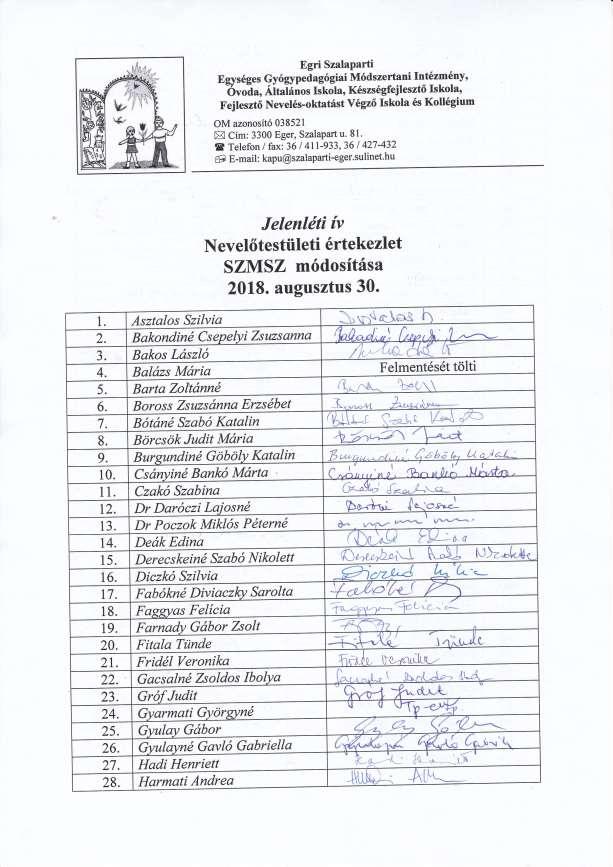 Egri Szalaparti
Egységes Gyógypedagógiai Módszertani Intézmény,
Óvoda, Általános Iskola, Készségfejlesztő Iskola,
Fejlesztő Nevelés-oktatást Végző Iskola és Kollégium
OM azonosító 038521
✉ Cím: 3300 Eger, Szalapart u. 81.
☎ Telefon / fax: 36 / 411-933, 36 / 427-432
E-mail: kapu@szalaparti-eger.sulinet.hu
Jelenléti ív
Nevelőtestületi értekezlet
SZMSZ módosítása
2018. augusztus 30.
1. Asztalos Szilvia
2. Bakondiné Csepelyi Zsuzsanna
3. Bakos László
4. Balázs Mária Felmentését tölti
5. Barta Zoltánné
6. Boross Zsuzsánna Erzsébet Boross Zsuzsánna
7. Bótáné Szabó Katalin Bótáné Szabó Katalin
8. Börcsök Judit Mária
9. Burgundiné Göböly Katalin Burgundiné Göböly Katalin
10. Csányiné Bankó Márta Csányiné Bankó Márta
11. Czakó Szabina Czakó Szabina
12. Dr Daróczi Lajosné Lajosné
13. Dr Poczok Miklós Péterné
14. Deák Edina Deák Edina
15. Derecskeiné Szabó Nikolett
16. Diczkó Szilvia
17. Fabókné Diviaczky Sarolta
18. Faggyas Felícia Faggyas Felícia
19. Farnady Gábor Zsolt
20. Fitala Tünde Fitala Tünde
21. Fridél Veronika Veronika
22. Gacsalné Zsoldos Ibolya
23. Gróf Judit Gróf Judit
24. Gyarmati Györgyné
25. Gyulay Gábor
26. Gyulayné Gavló Gabriella
27. Hadi Henriett
28. Harmati Andrea